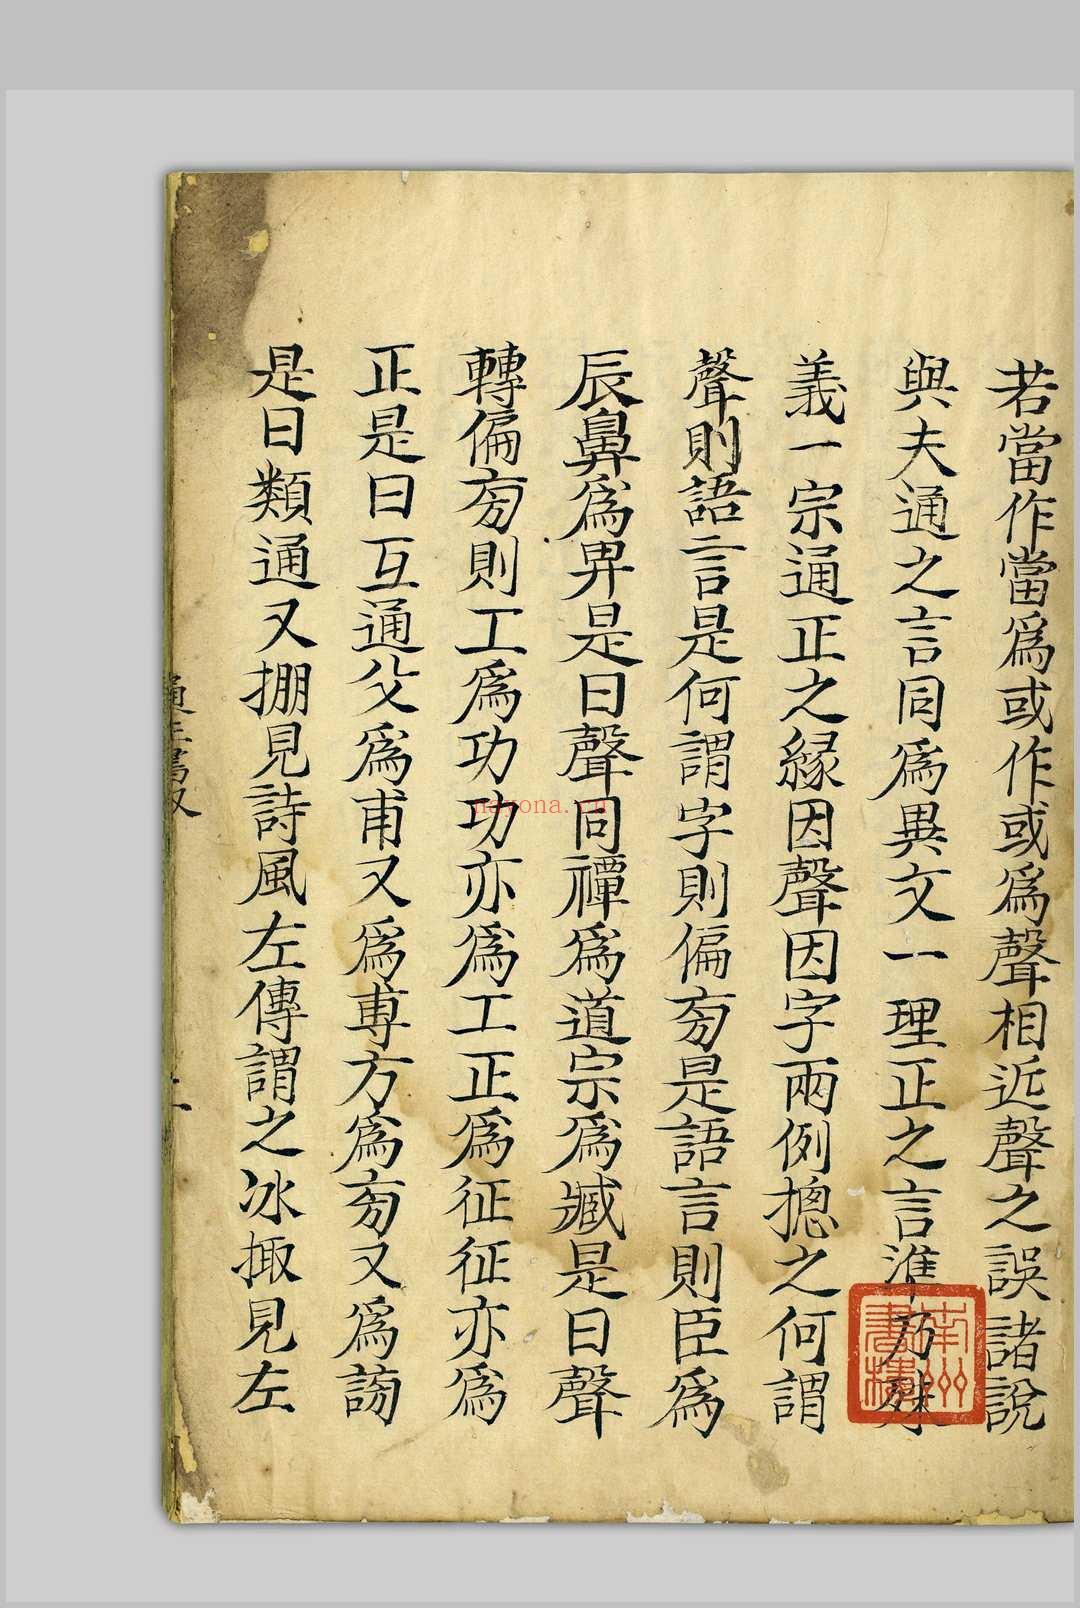 若當作當爲或作或爲聲相近聲之誤諸說
與夫通之言同爲異文一理正之言准乃殊
義一宗通正之緣因聲因字兩例摠之何謂
聲則語言是何謂字則偏㫄是語言則臣爲
辰鼻爲畀是曰聲同禫爲道宗爲臧是曰聲
轉偏㫄則工爲功功亦爲工正爲征征亦爲
正是曰互通父爲甫又爲尃方爲㫄又爲謗
是曰類通又掤見詩風左傳謂之冰掫見左
南州書樓
nayona.cn